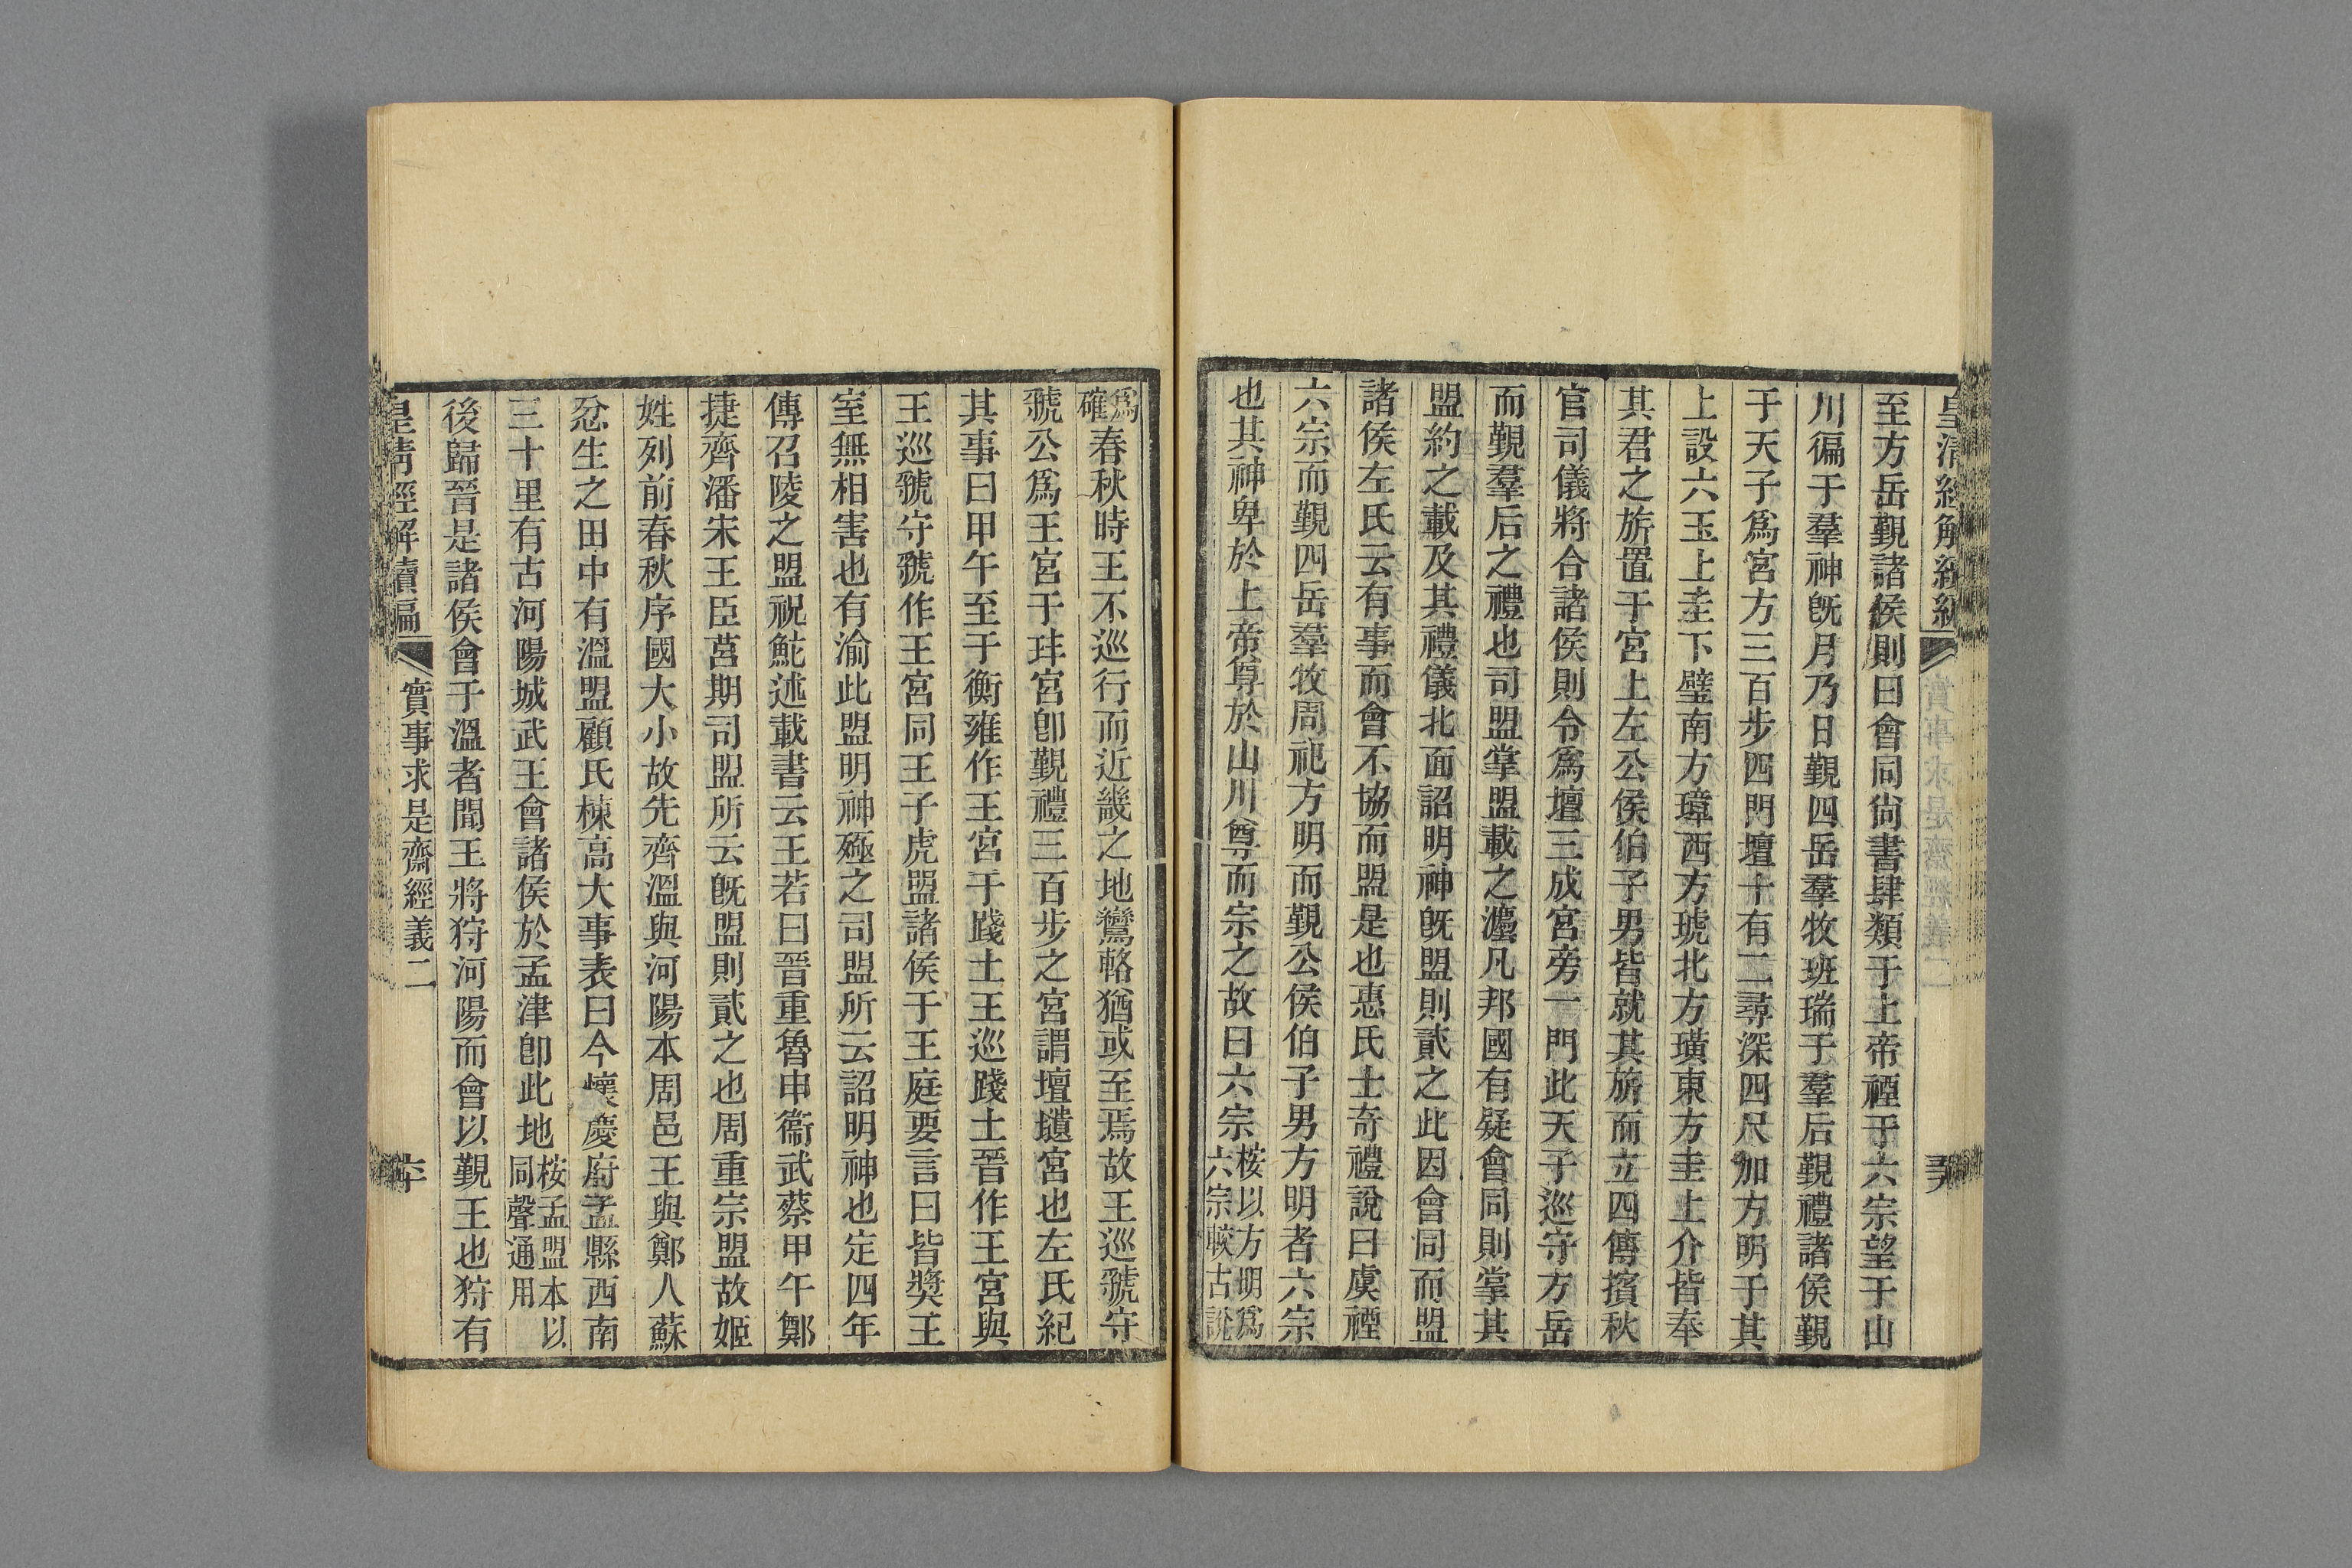 皇清經解續編 實事求是齋經義二
至方岳覲諸侯則曰會同尙書肆類于上帝禋于六宗望于山
川徧于羣神旣月乃日覲四岳羣牧班瑞于羣后覲禮諸侯覲
于天子爲宮方三百步四門壇十有二尋深四尺加方明于其
上設六玉上圭下璧南方璋西方琥北方璜東方圭上介皆奉
其君之旂置于宮上左公侯伯子男皆就其旂而立四傳擯秋
官司儀將合諸侯則令爲壇三成宮旁一門此天子巡守方岳
而覲羣后之禮也司盟掌盟載之灋凡邦國有疑會同則掌其
盟約之載及其禮儀北面詔明神旣盟則貳之此因會同而盟
諸侯左氏云有事而會不協而盟是也惠氏士奇禮說曰虞禋
六宗而覲四岳羣牧周祀方明而覲公侯伯子男方明者六宗
也其神卑於上帝尊於山川尊而宗之故曰六宗桉以方明爲六宗較古說
爲確春秋時王不巡行而近畿之地鸞輅猶或至焉故王巡虢守
虢公爲王宮于玤宮卽覲禮三百步之宮謂壇壝宮也左氏紀
其事曰甲午至于衡雍作王宮于踐土王巡踐土晉作王宮與
王巡虢守虢作王宮同王子虎盟諸侯于王庭要言曰皆獎王
室無相害也有渝此盟明神殛之司盟所云詔明神也定四年
傳召陵之盟祝鮀述載書云王若曰晉重魯申衞武蔡甲午鄭
捷齊潘宋王臣莒期司盟所云旣盟則貳之也周重宗盟故姬
姓列前春秋序國大小故先齊溫與河陽本周邑王與鄭人蘇
忿生之田中有溫盟顧氏棟高大事表曰今懷慶府孟縣西南
三十里有古河陽城武王會諸侯於孟津卽此地桉孟盟本以同聲通用
後歸晉是諸侯會于溫者聞王將狩河陽而會以覲王也狩有
皇清經解續編 實事求是齋經義二